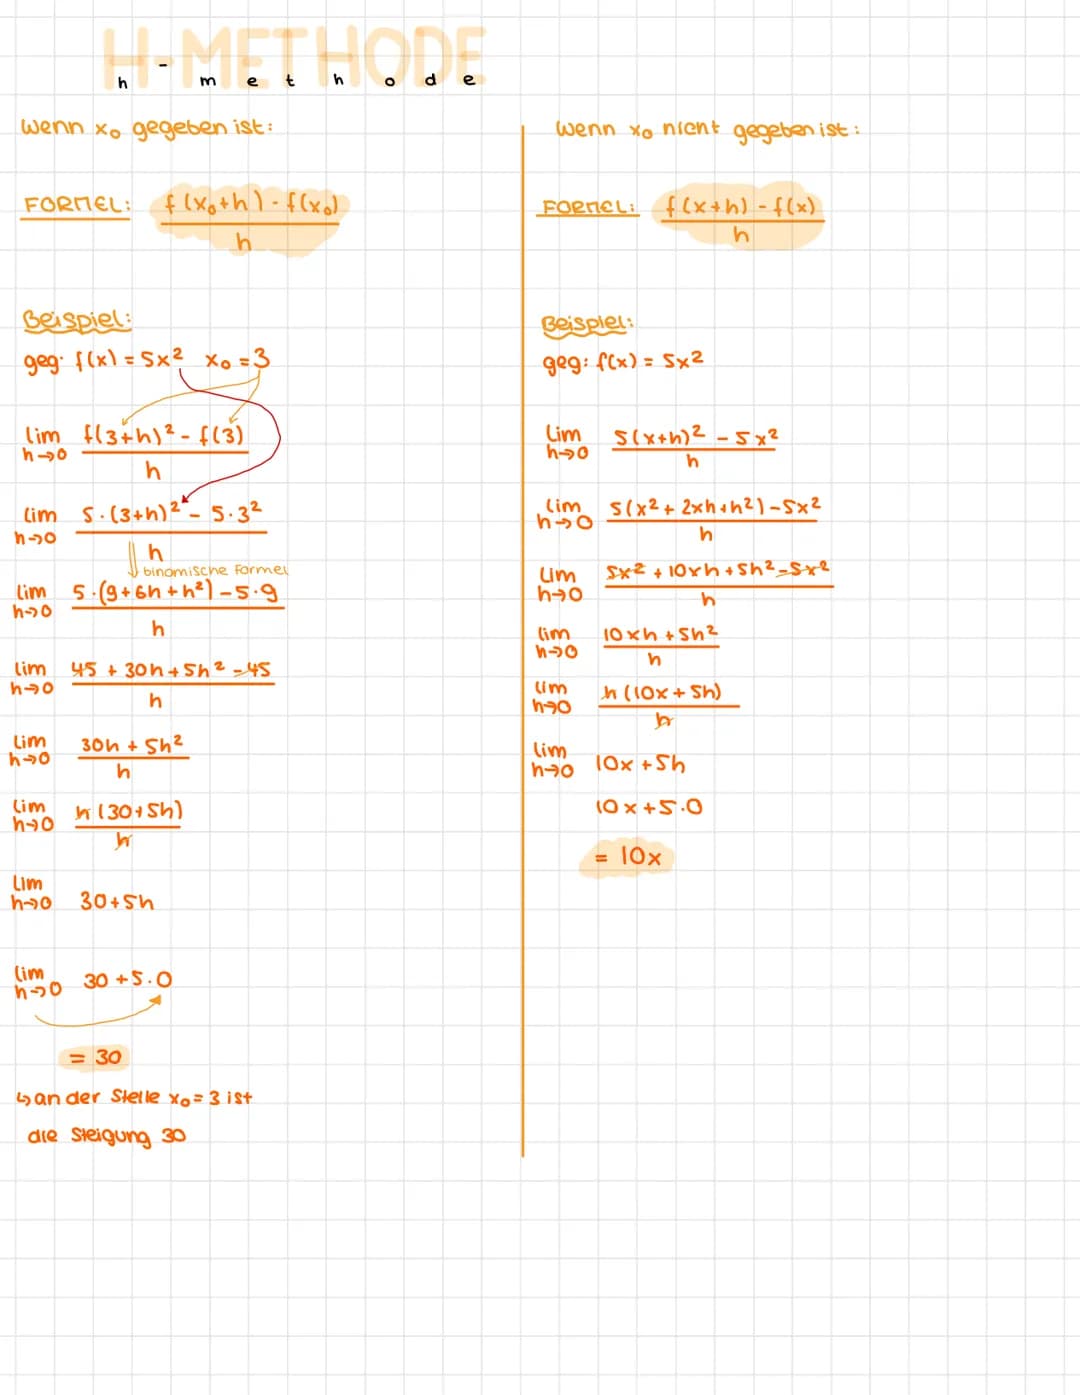 H-METHODE
h - m e t h o d e
Wenn x₀ gegeben ist:
FORMEL: f(x₀+h) - f(x₀)
h
Beispiel:
geg: f(x) = 5x² x₀ = 3
lim f(3+h)² - f(3)
h→0 h
lim 5·(3+h)² - 5·3²
h→0 h
binomische Formel
lim 5·(9+6h+h²) - 5·9
h→0 h
lim 45 + 30h + 5h² - 45
h→0 h
lim 30h + 5h²
h→0 h
lim h(30+5h)
h→0 h
lim
h→0 30+5h
lim 30+5·0
h→0
= 30
↳ an der Stelle x₀ = 3 ist
die Steigung 30
Wenn x₀ nicht gegeben ist:
FORMEL: f(x+h) - f(x)
h
Beispiel:
geg: f(x) = 5x²
lim 5(x+h)² - 5x²
h→0 h
lim 5(x² + 2xh + h²) - 5x²
h→0 h
lim 5x² + 10xh + 5h² - 5x²
h→0 h
lim 10xh + 5h²
h→0 h
lim h(10x + 5h)
h→0 h
lim
h→0 10x + 5h
10x + 5·0
= 10x